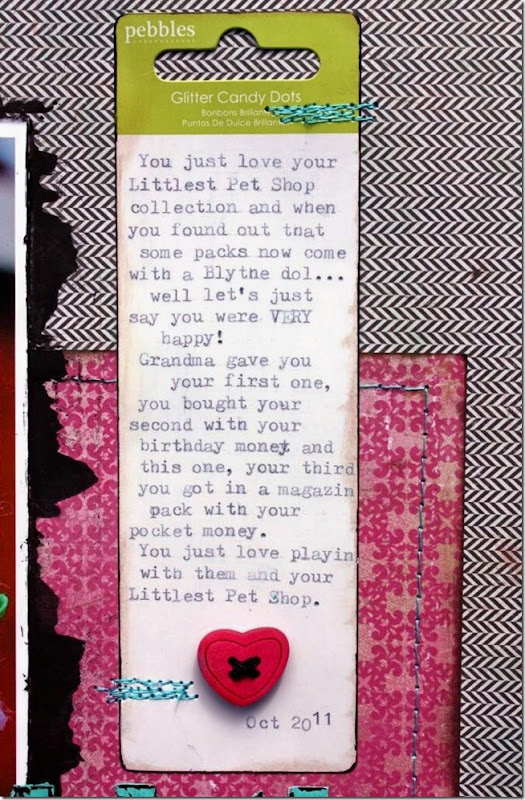 pebbles
Glitter Candy Dots
Bonbons Brillants
Puntos De Dulce Brillantes
You just love your
Littlest Pet Shop
collection and when
you found out that
some packs now come
with a Blythe dol...
well let's just
say you were VERY
happy!
Grandma gave you
your first one,
you bought your
second with your
birthday money and
this one, your third
you got in a magazin
pack with your
pocket money.
You just love playin
with them and your
Littlest Pet Shop.
Oct 2011